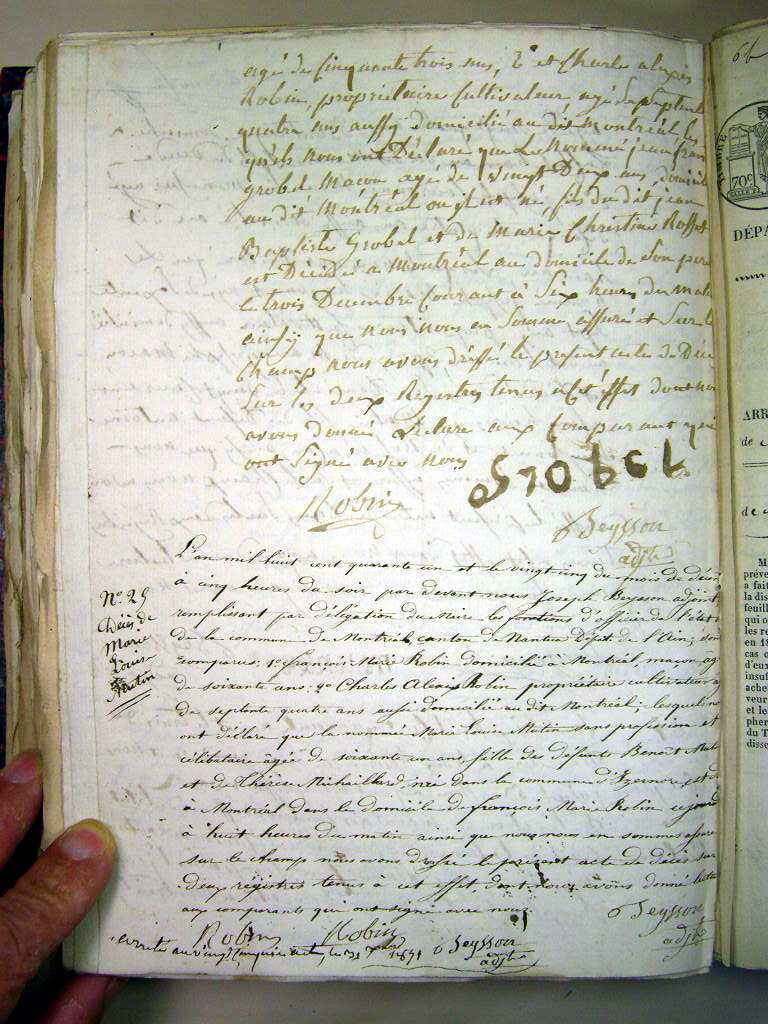 agé de Cinquante trois ans, 2° et Charle alexis
Robin, propriétaire Cultivateur, agé de septante
quatre ans aussy domicilié au dit Montréal, les
quels nous ont Déclaré que Le Nommé jean fran
grobel Macon agé de vingt Deux ans, domicil
au dit Montréal ou il est né, fils du dit jean
Baptiste Grobel et de Marie Christine Rosset
est Décédé a Montréal au domicile de Son pere
le trois Decembre Courant à Six heures du mati
ainsy que nous nous en Somme assuré et Sur le
Champ nous avons dressé le present acte de Décè
Sur les deux Registres tenus a Cet effet dont nou
avons donné Lecture aux Comparant qui
ont Signé avec nous
GROBEL
Robin
Beysson
adjt
L'an mil huit cent quarante un et le vingt-cinq du mois de décem
à cinq heures du soir par devant nous Joseph Beysson adjoint
remplissant par délégation du Maire les fonctions d'officier de l'état
de la commune de Montréal, canton de Nantua Dépt. de l'Ain; sont
comparus: 1° françois Marie Robin domicilié à Montréal, maçon, âg
de soixante ans: 2° Charles Alexis Robin propriétaire cultivateur a
de septante quatre ans aussi domicilié au dit Montréal; lesquels no
ont déclaré que la nommée Marie Louise Mutin sans profession et
célibataire âgée de soixante un ans, fille des défunts Benoît Mut
et de Thérèse Michaillard, née dans la commune d'Izernore, est d
à Montréal dans le domicile de françois Marie Robin ce jourd
à huit heures du matin ainsi que nous nous en sommes assuré
sur le champ nous avons dressé le présent acte de décès sur
deux régistres tenus à cet effet dont nous avons donné lectu
aux comparants qui ont signé avec nous
Robin Robin
Beysson
adjt
arrêté au vingt cinquième acte, le 31 Xbre 1841 Beysson
adjt
N° 25
Décès de
Marie
Louise
Mutin
70c
DÉPA
ARR
de
de
M
préve
a fait
la dis
feuill
qui o
les re
en 18
cas o
d'eux
insuf
ache
veur
et le
pher
du T
disse